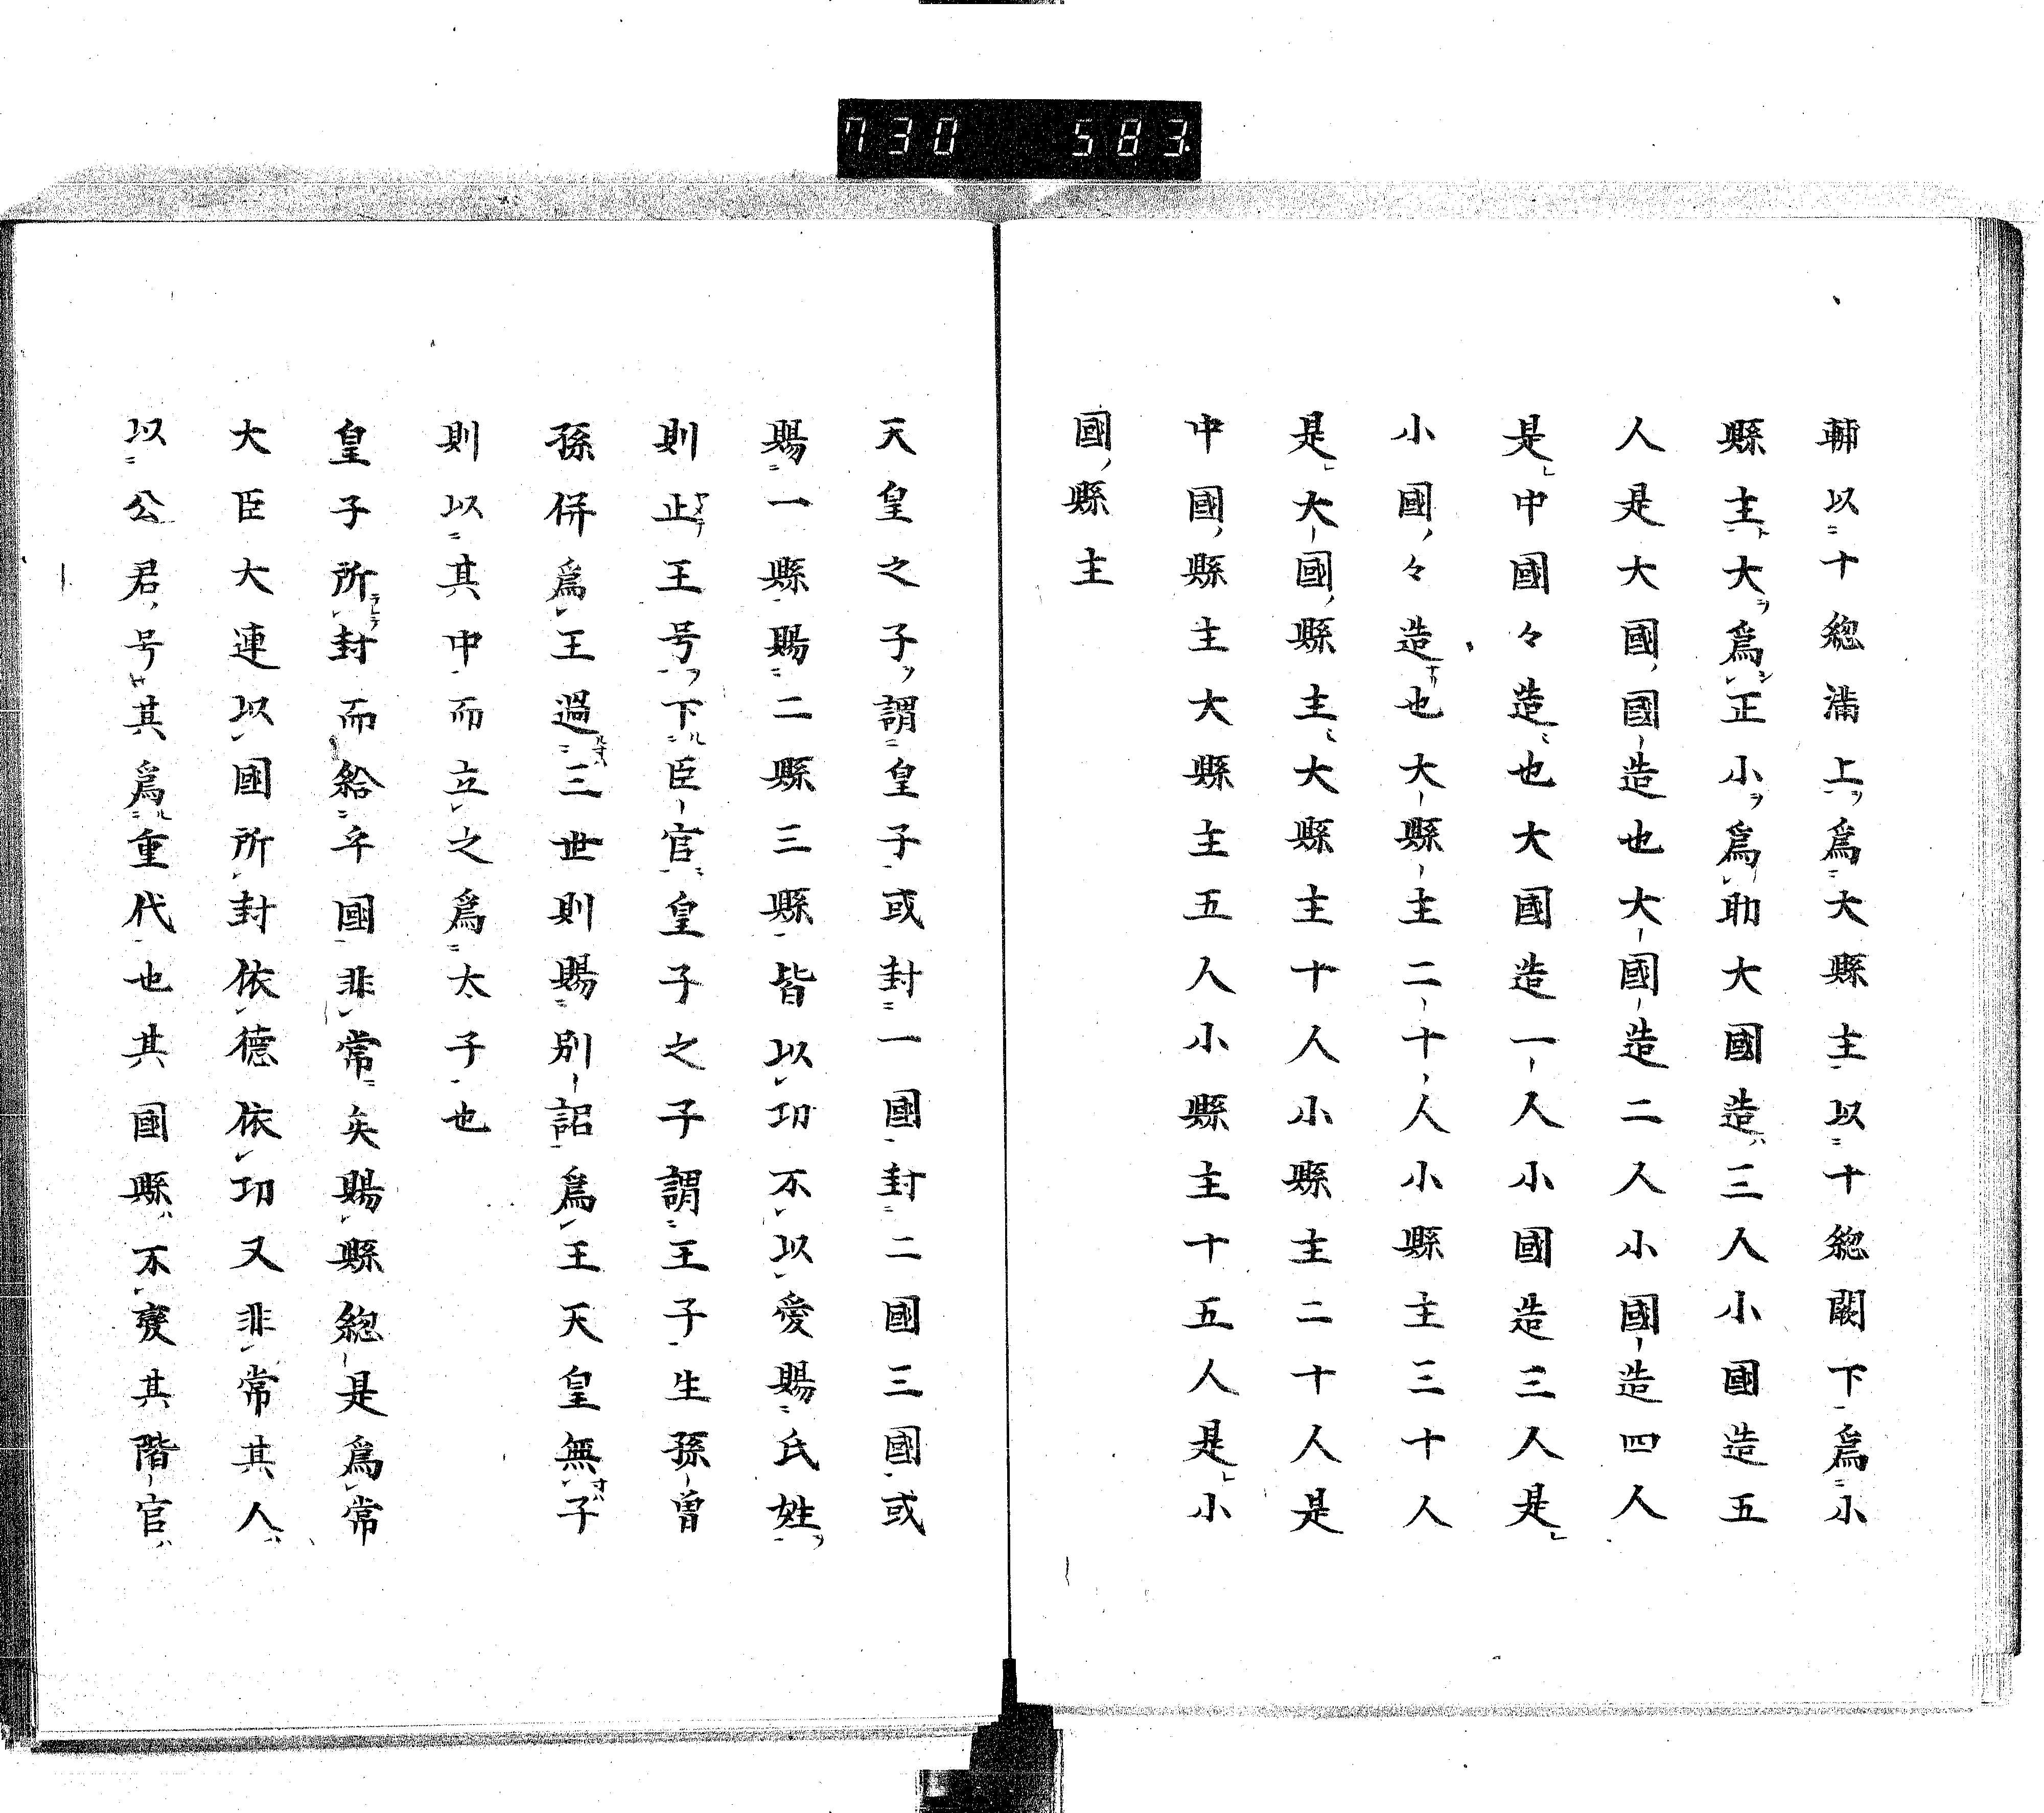 730 583
輔以十総満上為大縣主以十総闕下為小
縣主大為正小為助大國造三人小國造五
人是大國國造也大國造二人小國造四人
是中國々造也大國造一人小國造三人是
小國々造也大縣主二十人小縣主三十人
是大國縣主大縣主十人小縣主二十人是
中國縣主大縣主五人小縣主十五人是小
國縣主
天皇之子謂皇子或封一國封二國三國或
賜一縣賜二縣三縣皆以功不以愛賜氏姓
則止王号下臣官皇子之子謂王子生孫曽
孫併為王過三世則賜別詔為王天皇無子
則以其中而立之為太子也
皇子所封而給平國非常矣賜縣総是為常
大臣大連以國所封依德依功又非常其人
以公君号其為重代也其國縣不變其階官